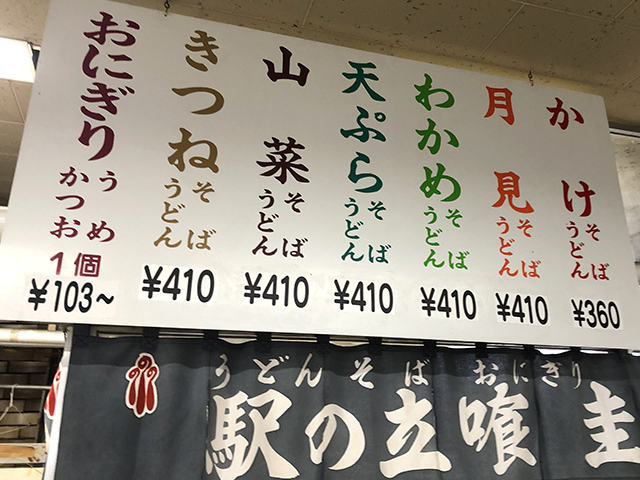 かけ
そば
うどん
¥360
月見
そば
うどん
¥410
わかめ
そば
うどん
¥410
天ぷら
そば
うどん
¥410
山菜
そば
うどん
¥410
きつね
そば
うどん
¥410
おにぎり
うめ
かつお
1個
¥103~
うどん そば おにぎり
駅の立喰 圭